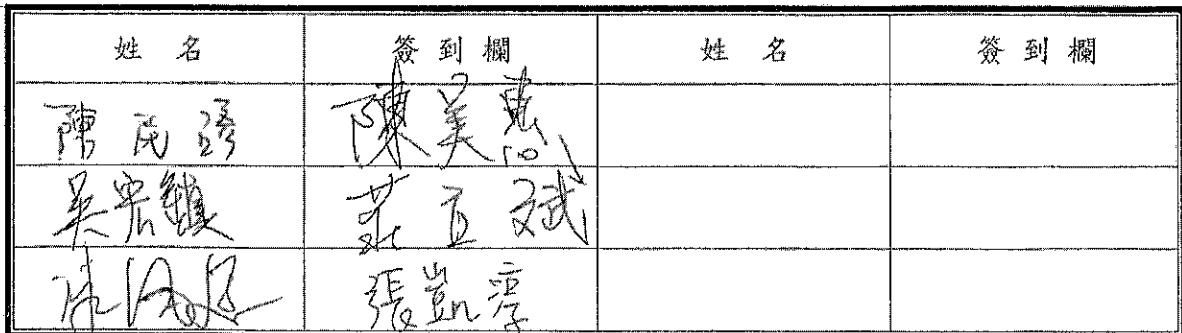 姓 名 簽 到 欄 姓 名 簽 到 欄
陳 民 諺 陳 美 惠
吳 宏 鎮 莊 立 斌
張 凱 淳